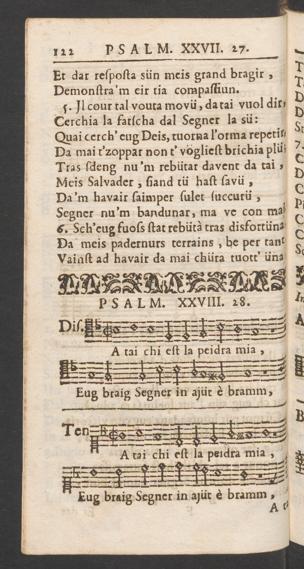 122 PSALM. XXVII. 27.
Et dar resposta sün meis grand bragir,
Demonstra'm eir tia compassiun.
5. Jl cour tal vouta movü, da tai vuol dir,
Cerchia la fatscha dal Segner la sü:
Quai cerch' eug Deis, tuorna l'orma repetir,
Da mai t'zoppar non t' vögliest brichia plü
Tras sdeng nu'm rebütar davent da tai,
Meis Salvader, siand tü hast savü,
Da'm havair saimper sulet succurü,
Segner nu'm bandunar, ma ve con
6. Sch'eug fuoss stat rebütà tras disfortüna
Da meis padernurs terrains, he per tant
Vainst ad havair da mai chüra tuott' üna
PSALM. XXVIII. 28.
Dis.
A tai chi est la peidra mia,
Eug braig Segner in ajüt è bramm,
Ten
A tai chi est la peidra mia,
Eug braig Segner in ajüt è bramm,
A